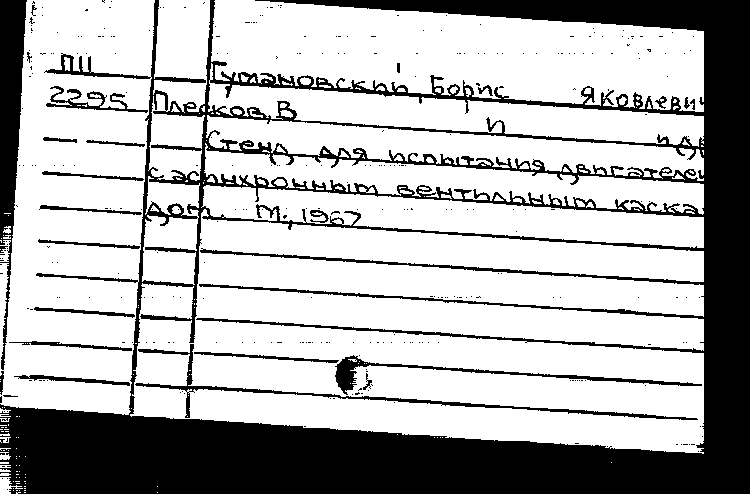 ПII Гумановский, Борис Яковлевич
2295 Плесков, В и
Стенд для испытания двигателей
с асинхронным вентильным каска
дом. М., 1967